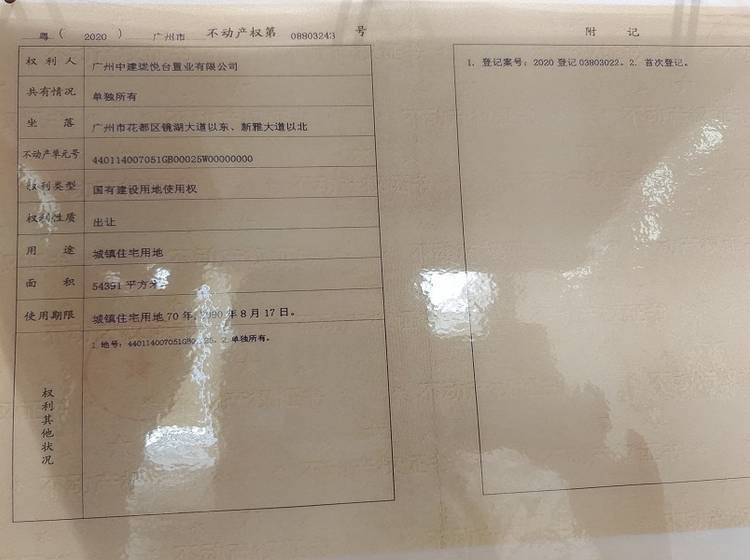 粤（ 2020 ） 广州市 不动产权第 08803243 号
权利人 广州中建珑悦台置业有限公司
共有情况 单独所有
坐落 广州市花都区镜湖大道以东、新雅大道以北
不动产单元号 440114007051GB00025W00000000
权利类型 国有建设用地使用权
权利性质 出让
用途 城镇住宅用地
面积 54391 平方米
使用期限 城镇住宅用地 70 年, 2090 年 8 月 17 日。
权利其他状况
1.地号: 440114007051GB00025. 2.单独所有。
附记
1. 登记案号: 2020 登记 03803022。2. 首次登记。